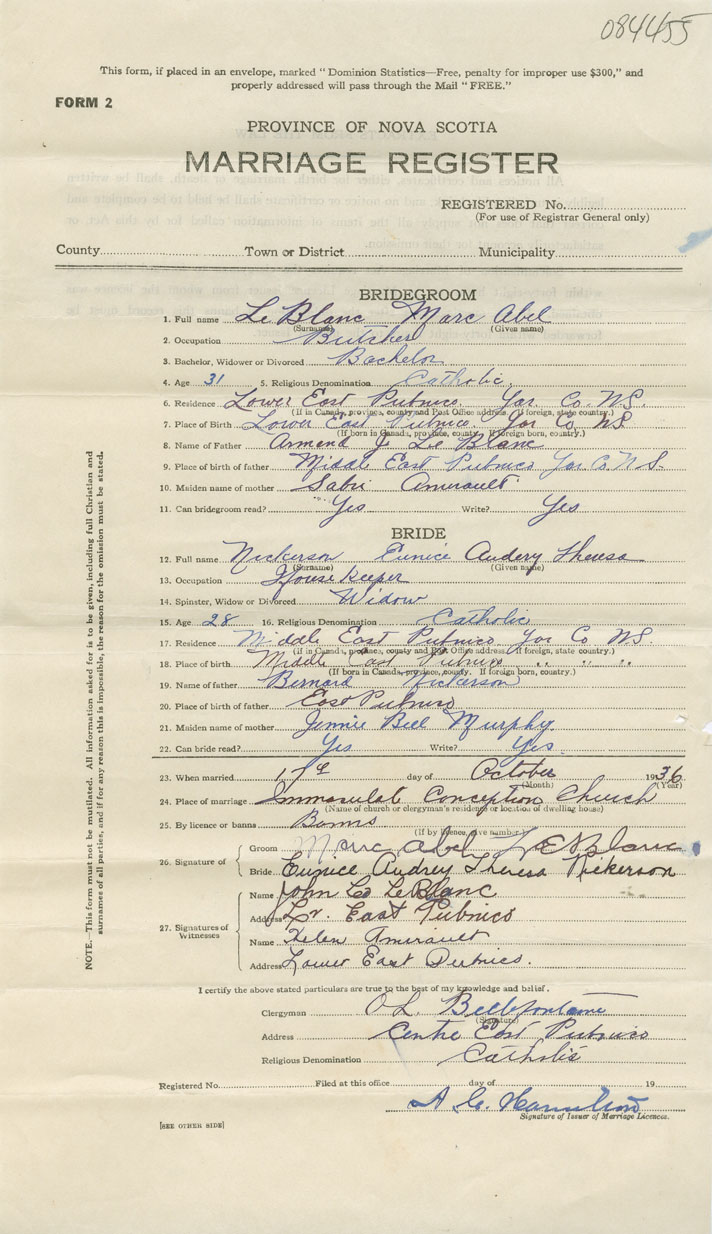 084455
This form, if placed in an envelope, marked "Dominion Statistics—Free, penalty for improper use $300," and
properly addressed will pass through the Mail "FREE."
FORM 2
PROVINCE OF NOVA SCOTIA
MARRIAGE REGISTER
REGISTERED No.
(For use of Registrar General only)
County Town or District Municipality
BRIDEGROOM
1. Full name Le Blanc Marc Abel
(Surname) (Given name)
2. Occupation Butcher
3. Bachelor, Widower or Divorced Bachelor
4. Age 31 5. Religious Denomination Catholic
6. Residence Lower East Pubnico Yar Co. N.S.
(If in Canada, province, county and Post Office address. If foreign, state country.)
7. Place of Birth Lower East Pubnico Yar Co NS
(If born in Canada, province, county. If foreign born, country.)
8. Name of Father Armand J Le Blanc
9. Place of birth of father Middl East Pubnico Yar Co N S.
10. Maiden name of mother Amirault
11. Can bridegroom read? Yes Write? Yes
BRIDE
12. Full name Nickerson Eunice Audery Theresa
(Surname) (Given name)
13. Occupation House keeper
14. Spinster, Widow or Divorced Widow
15. Age 28 16. Religious Denomination Catholic
17. Residence Middle East Pubnico Yar Co N.S.
(If in Canada, province, county and Post Office address. If foreign, state country.)
18. Place of birth Middle East Pubnico " " "
(If born in Canada, province, county. If foreign born, country.)
19. Name of father Bernard Nickerson
20. Place of birth of father East Pubnico
21. Maiden name of mother Jennie Bell Murphy
22. Can bride read? Yes Write? Yes.
23. When married 17th day of October 1936
(Month) (Year)
24. Place of marriage Immaculat Conception Church
(Name of church or clergyman's residence or location of dwelling house)
25. By licence or banns Banns
(If by licence, give number)
26. Signature of
Groom Marc Abel LeBlanc
Bride Eunice Audrey Theresa Nickerson
27. Signatures of Witnesses
Name John Leo LeBlanc
Address Lr. East Pubnico
Name Helen Amirault
Address Lower East Pubnico.
I certify the above stated particulars are true to the best of my knowledge and belief.
Clergyman Bellefontaine
(Signature)
Address Centre East Pubnico
Religious Denomination Catholic
Registered No. Filed at this office day of 19
Signature of Issuer of Marriage Licences.
[SEE OTHER SIDE]
NOTE.—This form must not be mutilated. All information asked for is to be given, including full Christian and
surnames of all parties, and if for any reason this is impossible, the reason for the omission must be stated.